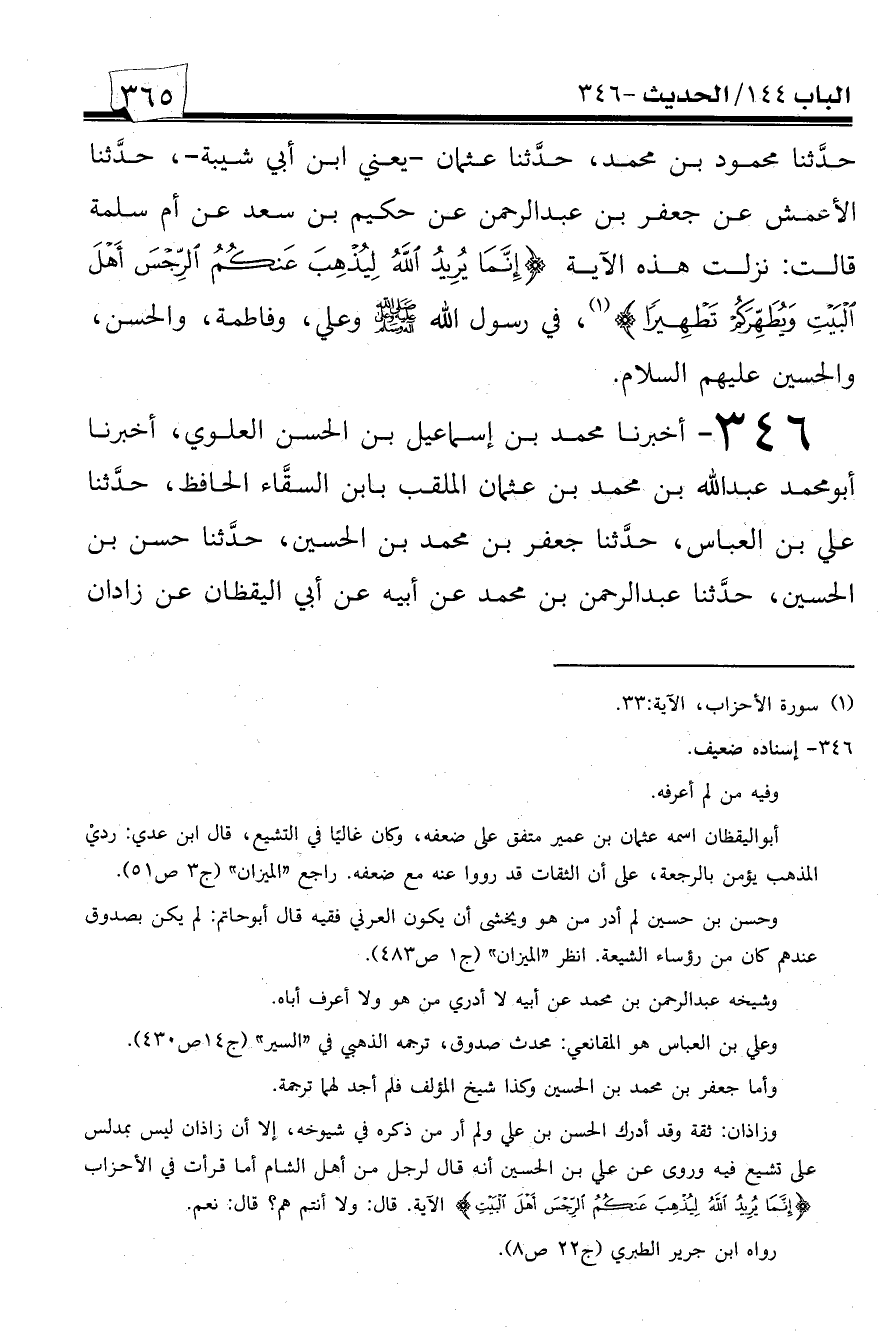 الباب ١٤٤/الحديث -٣٤٦
٣٦٥
حدَّثنا محمود بن محمد، حدَّثنا عثمان -يعني ابن أبي شيبة-، حدَّثنا
الأعمش عن جعفر بن عبدالرحمن عن حكيم بن سعد عن أم سلمة
قالت: نزلت هذه الآية ﴿إِنَّمَا يُرِيدُ ٱللَّهُ لِيُذْهِبَ عَنكُمُ ٱلرِّجْسَ أَهْلَ
ٱلْبَيْتِ وَيُطَهِّرَكُمْ تَطْهِيرًا﴾(١)، في رسول الله ﷺ وعلي، وفاطمة، والحسن،
والحسين عليهم السلام.
٣٤٦- أخبرنا محمد بن إسماعيل بن الحسن العلوي، أخبرنا
أبومحمد عبدالله بن محمد بن عثمان الملقب بابن السقَّاء الحافظ، حدَّثنا
علي بن العباس، حدَّثنا جعفر بن محمد بن الحسين، حدَّثنا حسن بن
الحسين، حدَّثنا عبدالرحمن بن محمد عن أبيه عن أبي اليقظان عن زادان
(١) سورة الأحزاب، الآية:٣٣.
٣٤٦- إسناده ضعيف.
وفيه من لم أعرفه.
أبواليقظان اسمه عثمان بن عمير متفق على ضعفه، وكان غاليًا في التشيع، قال ابن عدي: رديْ
المذهب يؤمن بالرجعة، على أن الثقات قد رووا عنه مع ضعفه. راجع «الميزان» (ج٣ ص٥١).
وحسن بن حسين لم أدر من هو ويخشى أن يكون العرني فقيه قال أبوحاتم: لم يكن بصدوق
عندهم كان من رؤساء الشيعة. انظر «الميزان» (ج١ ص٤٨٣).
وشيخه عبدالرحمن بن محمد عن أبيه لا أدري من هو ولا أعرف أباه.
وعلي بن العباس هو المقانعي: محدث صدوق، ترجمه الذهبي في «السير» (ج١٤ص٤٣٠).
وأما جعفر بن محمد بن الحسين وكذا شيخ المؤلف فلم أجد لهما ترجمة.
وزاذان: ثقة وقد أدرك الحسن بن علي ولم أر من ذكره في شيوخه، إلا أن زاذان ليس بمدلس
على تشيع فيه وروى عن علي بن الحسين أنه قال لرجل من أهل الشام أما قرأت في الأحزاب
﴿إِنَّمَا يُرِيدُ ٱللَّهُ لِيُذْهِبَ عَنكُمُ ٱلرِّجْسَ أَهْلَ ٱلْبَيْتِ﴾ الآية. قال: ولا أنتم هم؟ قال: نعم.
رواه ابن جرير الطبري (ج٢٢ ص٨).